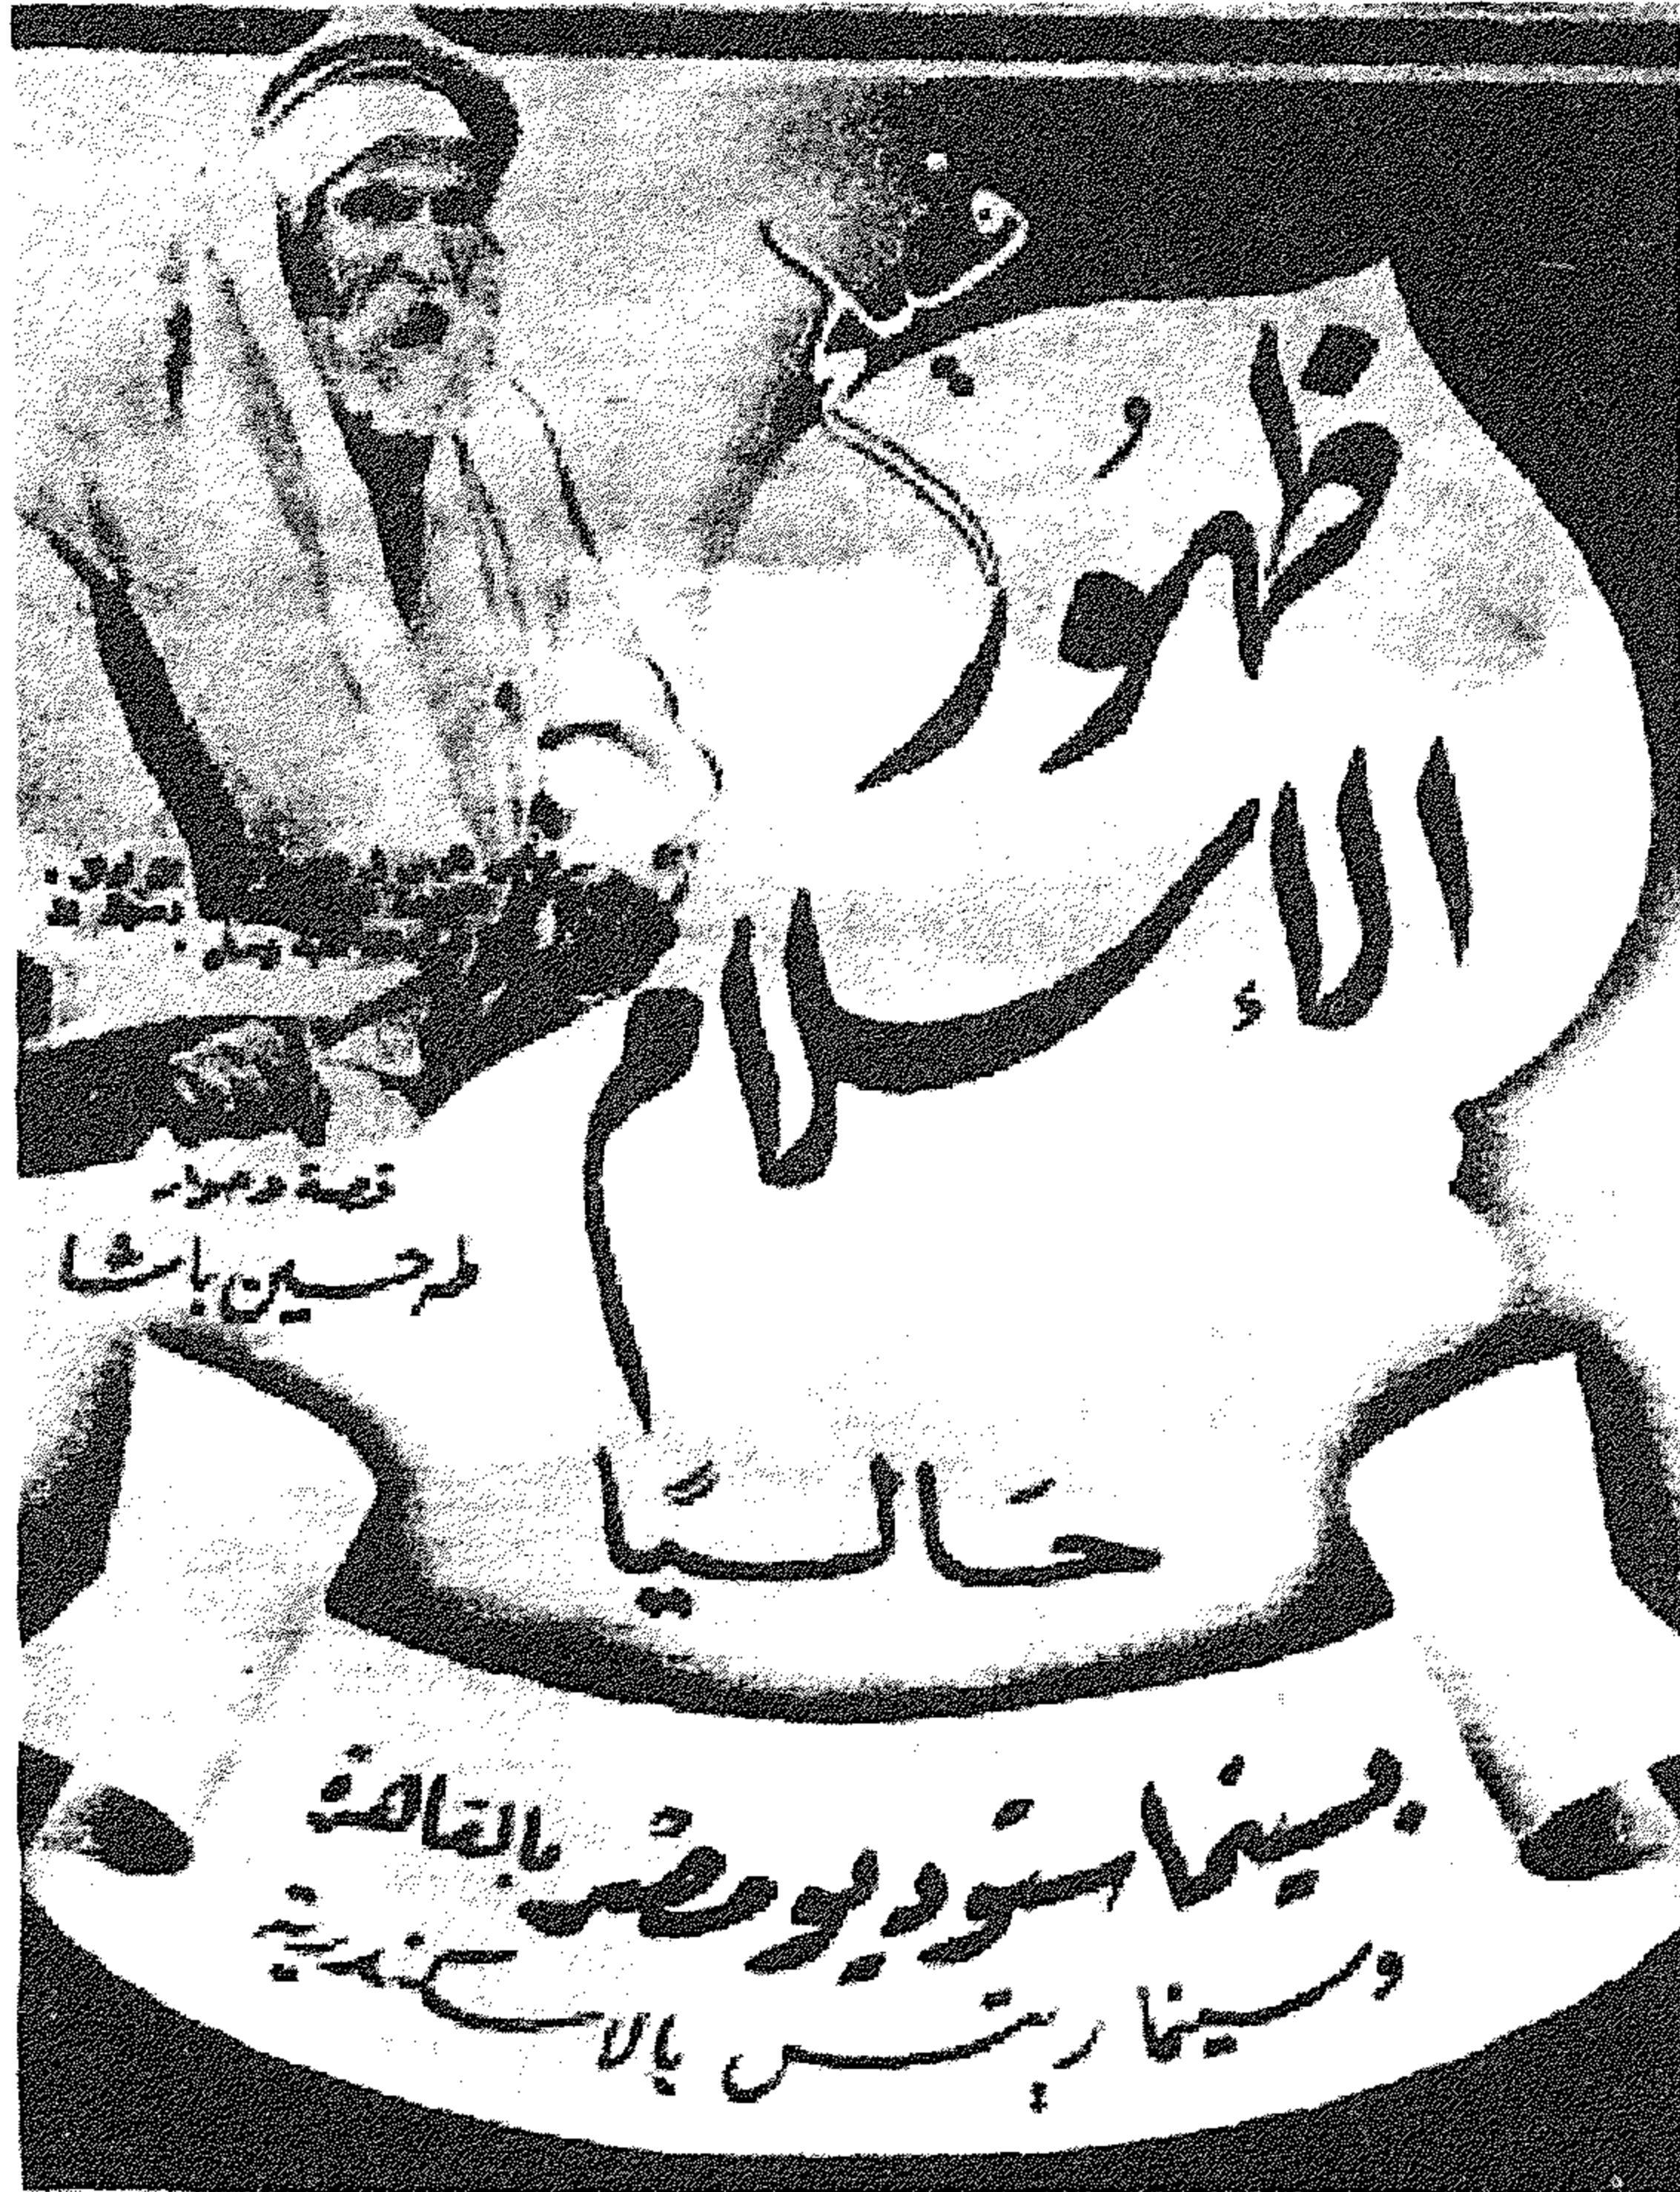 فيلم
ظهُور
الإسلام
قصة وحوار
طه حسين باشا
حَاليًّا
بسينما ستوديو مصر بالقاهرة
وسينما ريتس بالاسكندرية